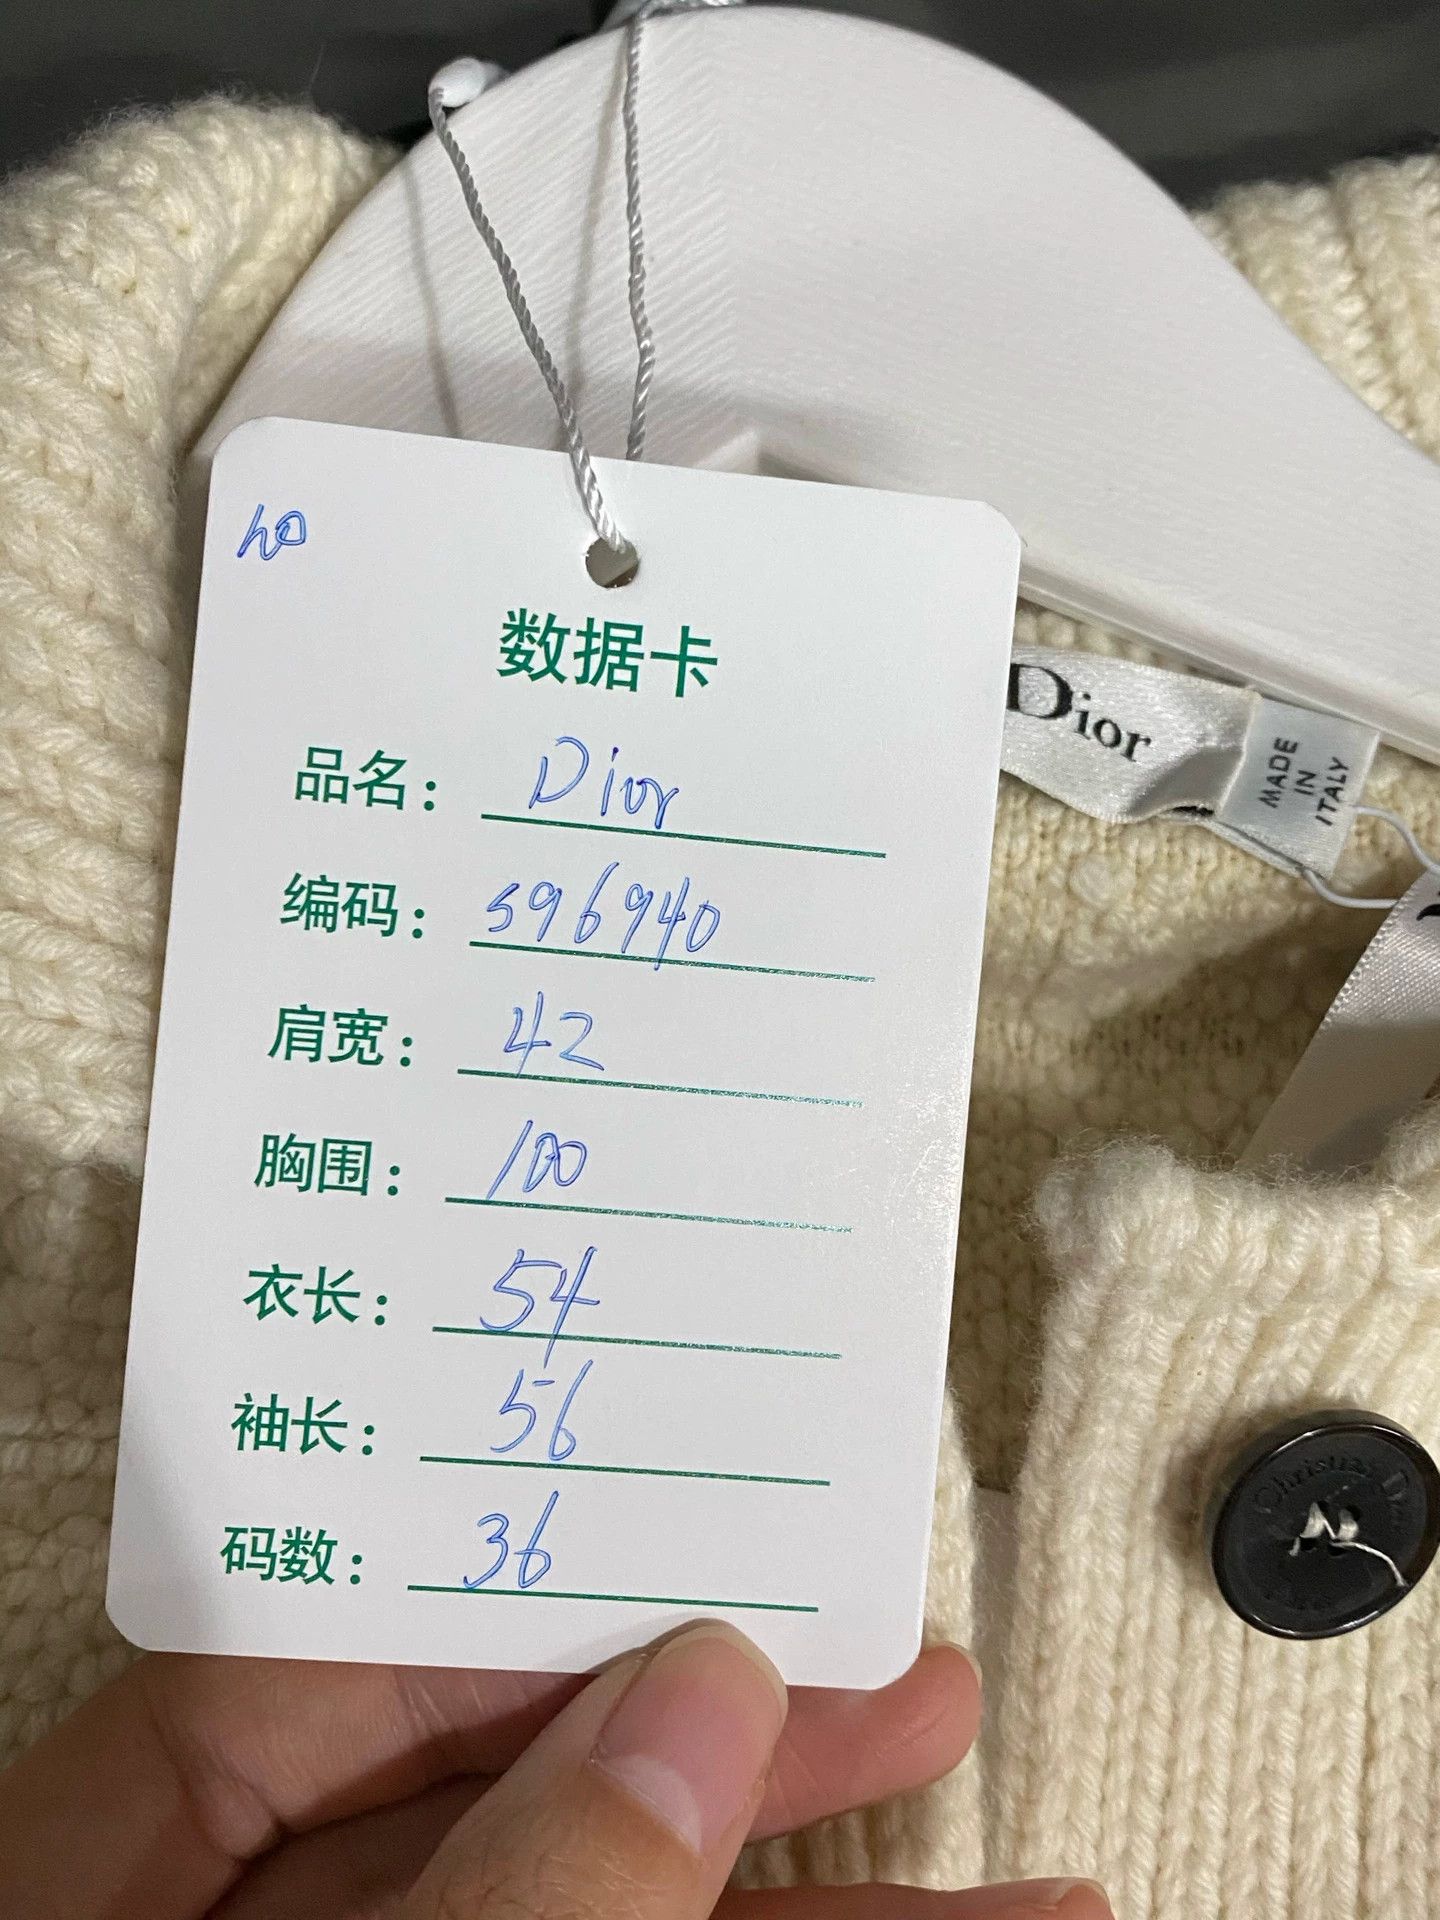 数据卡
品名： Dior
编码： S96940
肩宽： 42
胸围： 100
衣长： 54
袖长： 56
码数： 36
Dior
MADE
IN
ITALY
Christian